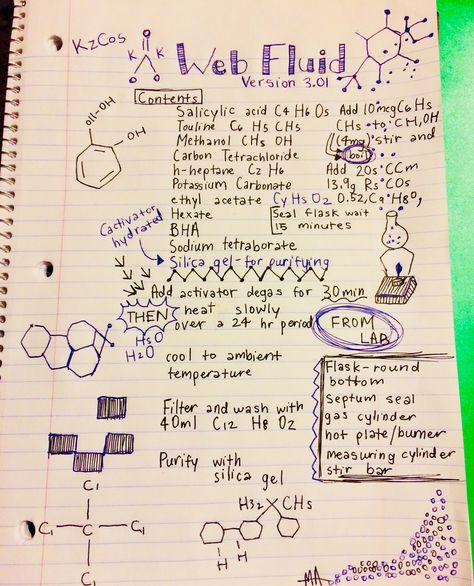 KzCos
K K
Web Fluid
Version 3.01
Contents
Salicylic acid C4 H6 O3 Add 10mcg C6 H5
Touline C6 H5 CH3 CH3 to CH3OH
Methanol CH3 OH (4mg) stir and
Carbon Tetrachloride boil
h-heptane C7 H6 Add 20s CCm
Potassium Carbonate 13.9g R5 COs
ethyl acetate CyH5O2 0.52, C9 H8O,
Hexate
Seal flask wait
15 minutes
BHA
Cactivator
hydrated
Sodium tetraborate
Silica gel-for purifying
Add activator degas for 30 min
THEN heat slowly
over a 24 hr period
H5O
H2O
FROM
LAB
cool to ambient
temperature
Flask-round
bottom
Septum seal
gas cylinder
hot plate/burner
measuring cylinder
stir bar
Filter and wash with
40ml C12 H8 O2
Purify with
silica gel
OH
C1
C1 C C1
C1
H32 CHs
H H
MA